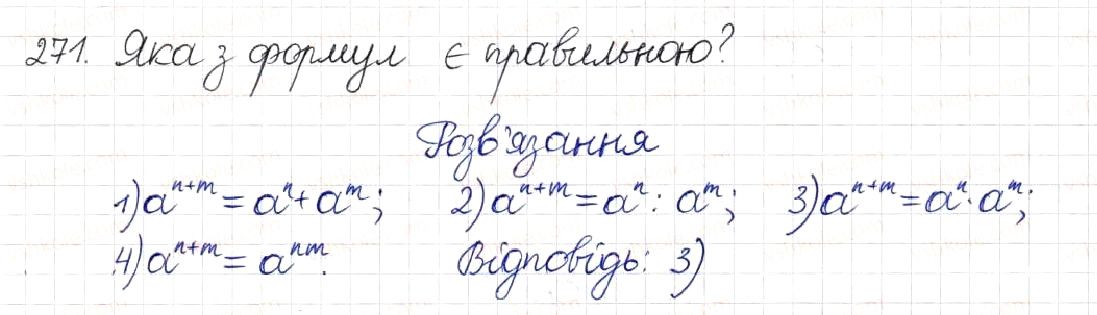 271. Яка з формул є правильною?
Розв'язання
1) aⁿ⁺ᵐ = aⁿ + aᵐ; 2) aⁿ⁺ᵐ = aⁿ : aᵐ; 3) aⁿ⁺ᵐ = aⁿ · aᵐ;
4) aⁿ⁺ᵐ = aⁿᵐ. Відповідь: 3)